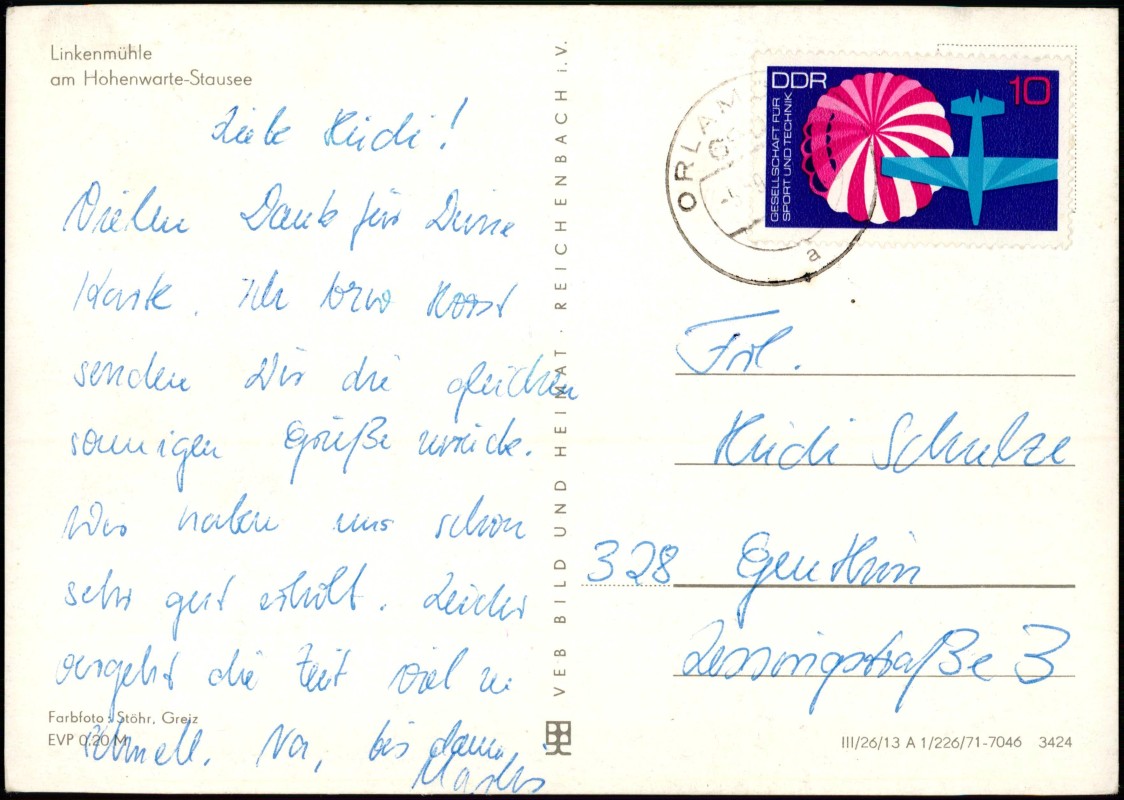 Linkenmühle
am Hohenwarte-Stausee
Liebe Heidi!
Vielen Dank für Deine
Karte. Ich bzw Horst
senden Dir die gleichen
sonnigen Grüße zurück.
Wir haben uns schon
sehr gut erholt. Leider
vergeht die Zeit viel zu
schnell. Na, bis dann,
Farbfoto: Stöhr, Greiz
EVP 0,20 M
VEB BILD UND HEIMAT · REICHENBACH i. V.
DDR 10
GESELLSCHAFT FÜR
SPORT UND TECHNIK
a
Frl.
Heidi Schulze
328 Genthin
Lessingstraße 3
III/26/13 A 1/226/71-7046 3424